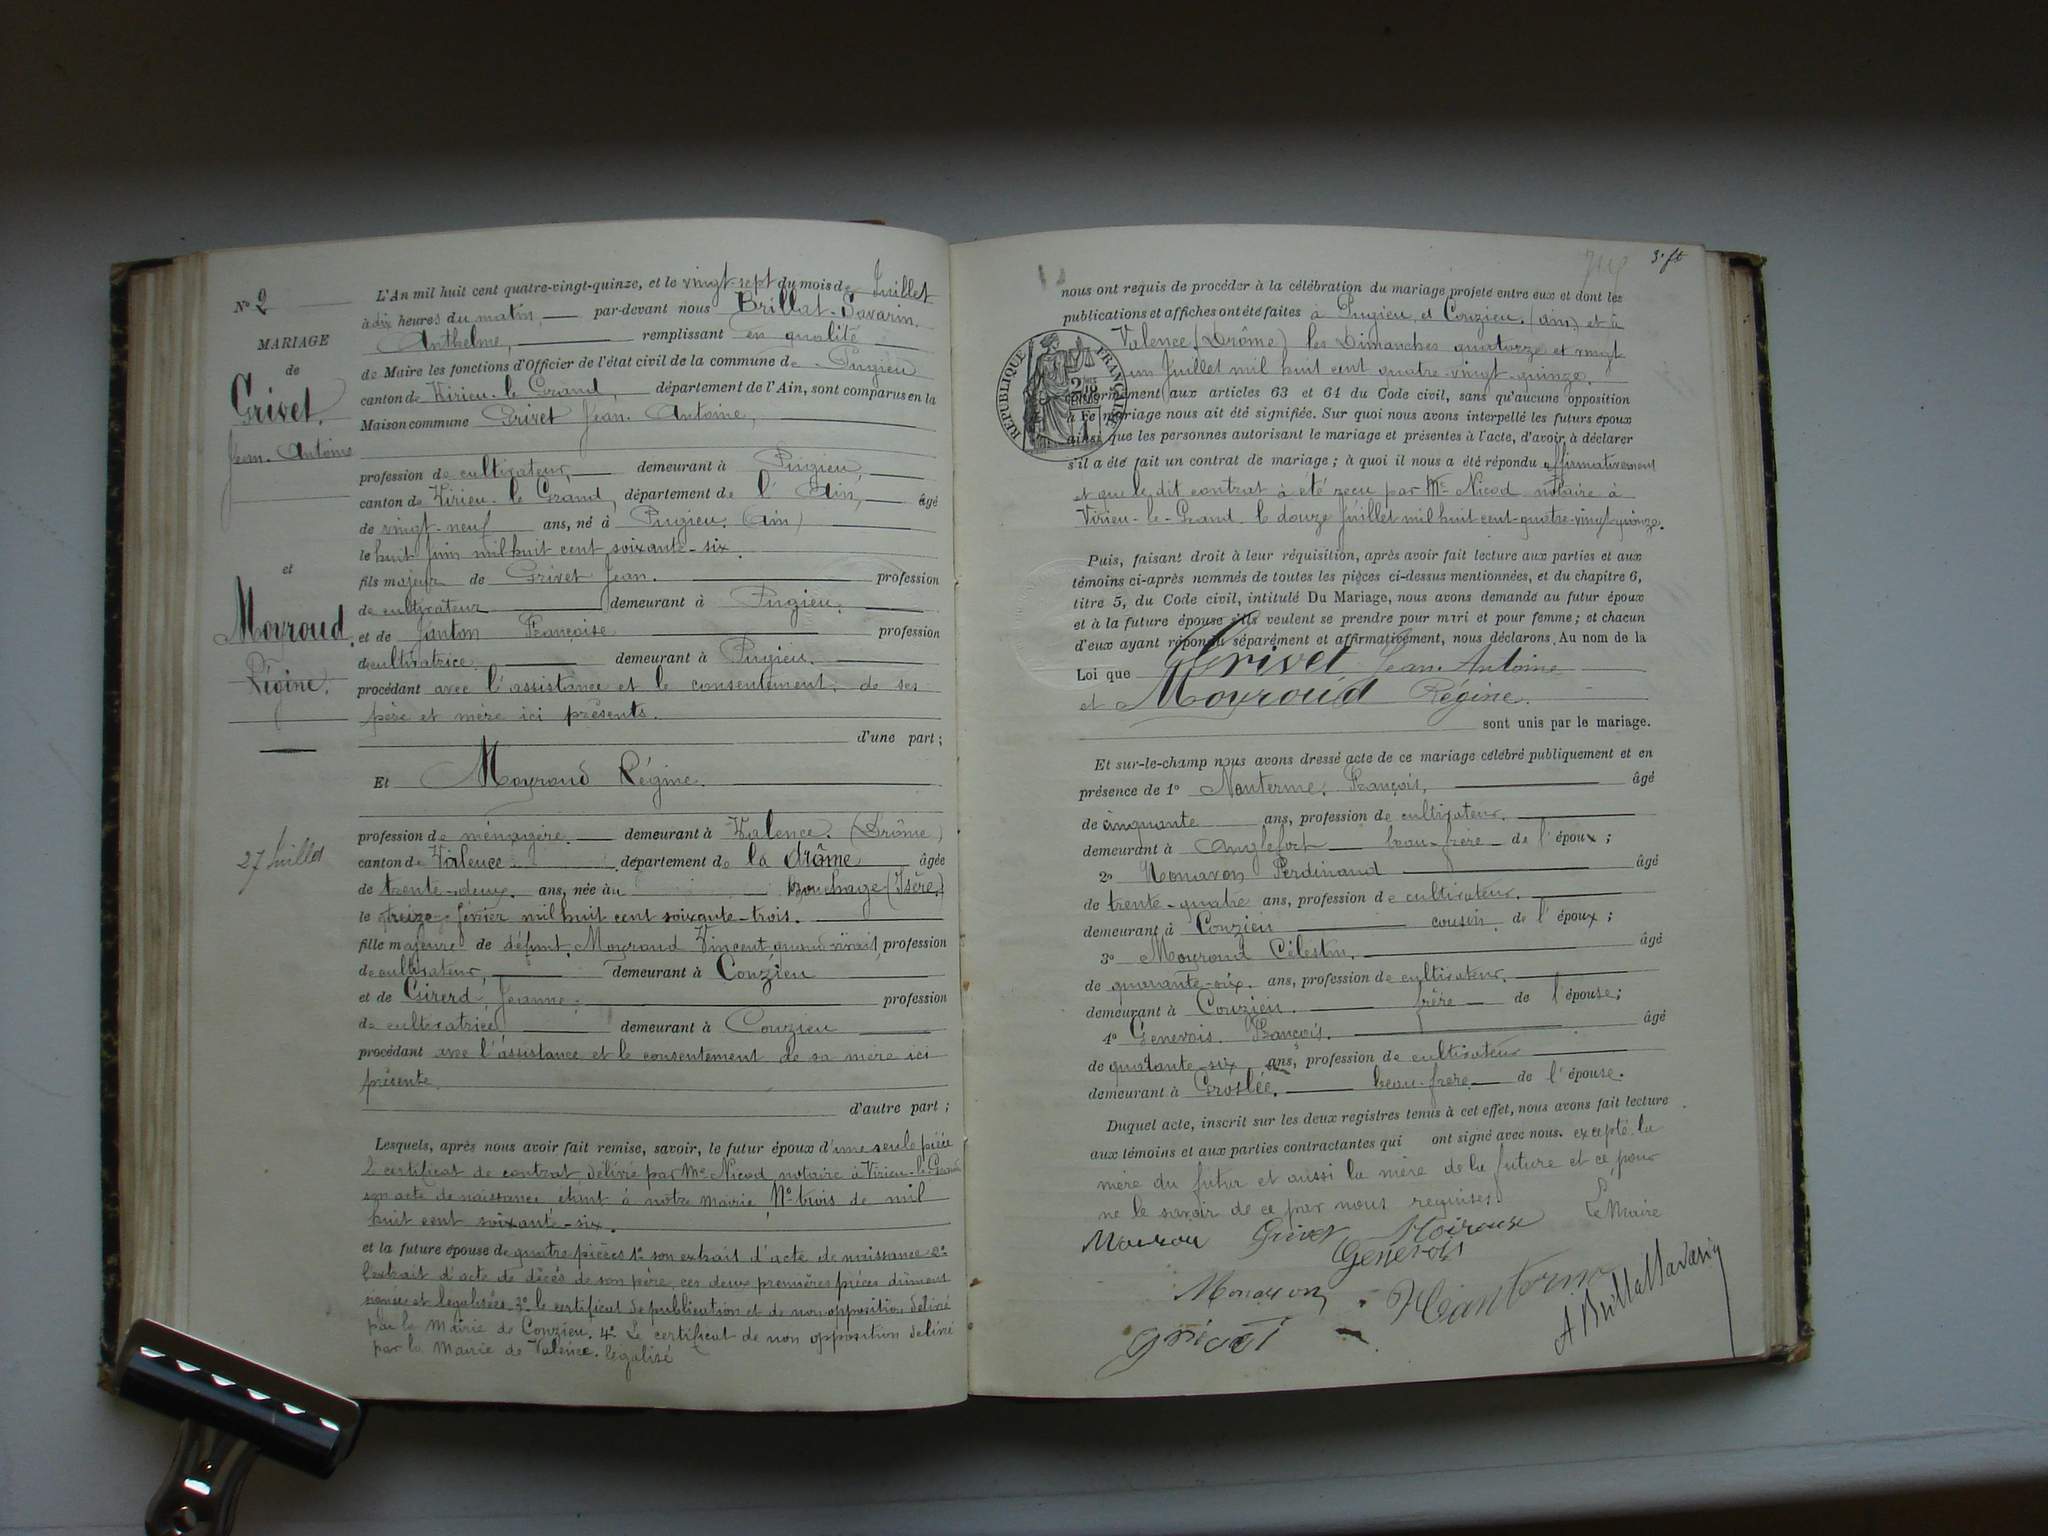 N° 2
MARIAGE
de
Grivet
Jean-Antoine
et
Moyroud
Régine.
27 Juillet
L'An mil huit cent quatre-vingt-quinze, et le vingt-sept du mois de Juillet
à dix heures du matin, par-devant nous Brillat-Savarin
Anthelme, remplissant en qualité
de Maire les fonctions d'Officier de l'état civil de la commune de Pugieu
canton de Virieu-le-Grand, département de l'Ain, sont comparus en la
Maison commune Grivet Jean-Antoine,
profession de cultivateur, demeurant à Pugieu,
canton de Virieu-le-Grand, département de l'Ain, âgé
de vingt-neuf ans, né à Pugieu (Ain)
le huit Juin mil huit cent soixante-six.
fils majeur de Grivet Jean. profession
de cultivateur demeurant à Pugieu.
et de Janton Françoise profession
de cultivatrice demeurant à Pugieu.
procédant avec l'assistance et le consentement de ses
père et mère ici présents.
d'une part ;
Et Moyroud Régine.
profession de ménagère. demeurant à Valence. (Drôme)
canton de Valence département de la Drôme âgée
de trente-deux ans, née au Bouchage (Isère.)
le treize février mil huit cent soixante-trois.
fille majeure de défunt Moyroud Vincent quand vivait, profession
de cultivateur, demeurant à Conzieu
et de Girerd Jeanne. profession
de cultivatrice demeurant à Conzieu
procédant avec l'assistance et le consentement de sa mère ici
présente.
d'autre part ;
Lesquels, après nous avoir fait remise, savoir, le futur époux d'une seule pièce
le certificat de contrat délivré par Me Nicod notaire à Virieu-le-Grand
son acte de naissance étant à notre mairie, N° trois de mil
huit cent soixante-six.
et la future épouse de quatre pièces 1° son extrait d'acte de naissance 2°
l'extrait d'acte de décès de son père, ces deux premières pièces dûment
signées et légalisées 3° le certificat de publication et de non opposition délivré
par la Mairie de Conzieu. 4° Le certificat de non opposition délivré
par la Mairie de Valence. légalisé
nous ont requis de procéder à la célébration du mariage projeté entre eux et dont les
publications et affiches ont été faites à Pugieu et Conzieu. (Ain) et à
Valence (Drôme) les Dimanches quatorze et vingt
un Juillet mil huit cent quatre-vingt-quinze.
RÉPUBLIQUE FRANÇAISE
conformément aux articles 63 et 64 du Code civil, sans qu'aucune opposition
à ce mariage nous ait été signifiée. Sur quoi nous avons interpellé les futurs époux
ainsi que les personnes autorisant le mariage et présentes à l'acte, d'avoir à déclarer
s'il a été fait un contrat de mariage ; à quoi il nous a été répondu affirmativement
et que le dit contrat à été reçu par Me Nicod notaire à
Virieu-le-Grand le douze Juillet mil huit cent quatre-vingt-quinze.
Puis, faisant droit à leur réquisition, après avoir fait lecture aux parties et aux
témoins ci-après nommés de toutes les pièces ci-dessus mentionnées, et du chapitre 6,
titre 5, du Code civil, intitulé Du Mariage, nous avons demandé au futur époux
et à la future épouse s'ils veulent se prendre pour mari et pour femme ; et chacun
d'eux ayant répondu séparément et affirmativement, nous déclarons. Au nom de la
Loi que Grivet Jean-Antoine
et Moyroud Régine.
sont unis par le mariage.
Et sur-le-champ nous avons dressé acte de ce mariage célébré publiquement et en
présence de 1° Nanterme François, âgé
de cinquante ans, profession de cultivateur.
demeurant à Anglefort beau-frère de l'époux ;
2° Monavon Ferdinand âgé
de trente-quatre ans, profession de cultivateur.
demeurant à Conzieu cousin de l'époux ;
3° Moyroud Célestin. âgé
de quarante-six. ans, profession de cultivateur.
demeurant à Conzieu. frère de l'épouse ;
4° Genevois François. âgé
de quarante-six ans, profession de cultivateur
demeurant à Groslée. beau-frère de l'épouse.
Duquel acte, inscrit sur les deux registres tenus à cet effet, nous avons fait lecture
aux témoins et aux parties contractantes qui ont signé avec nous. excepté la
mère du futur et aussi la mère de la future et ce, pour
ne le savoir de ce par nous requises
Le Maire
Grivet
Genevois
Monavon
A Brillat Savarin